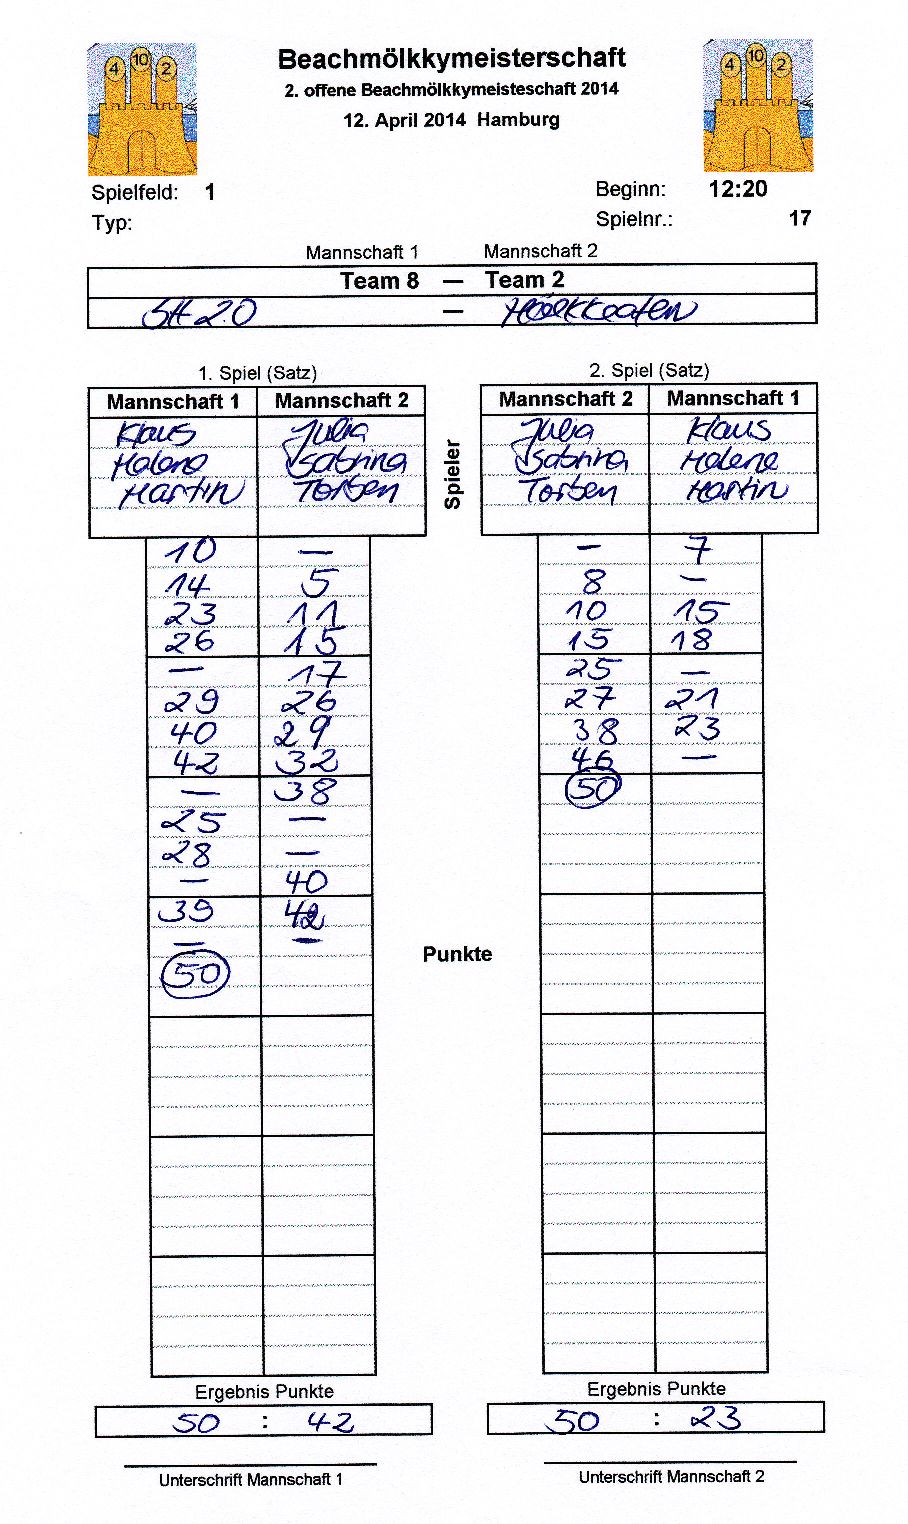 4 10 2
4 10 2
Beachmölkkymeisterschaft
2. offene Beachmölkkymeisteschaft 2014
12. April 2014 Hamburg
Spielfeld: 1 Beginn: 12:20
Typ: Spielnr.: 17
Mannschaft 1 Mannschaft 2
Team 8 — Team 2
SH 20 —
1. Spiel (Satz) 2. Spiel (Satz)
Mannschaft 1 Mannschaft 2 Mannschaft 2 Mannschaft 1
Klaus Julia Julia Klaus
Helene Sabrina Sabrina Helene
Martin Torben Torben Martin
Spieler
10 — — 7
14 5 8 —
23 11 10 15
26 15 15 18
— 17 25 —
29 26 27 21
40 29 38 23
42 32 46 —
— 38 50
25 —
28 —
— 40
39 42
— —
50
Punkte
Ergebnis Punkte Ergebnis Punkte
50 : 42 50 : 23
Unterschrift Mannschaft 1 Unterschrift Mannschaft 2